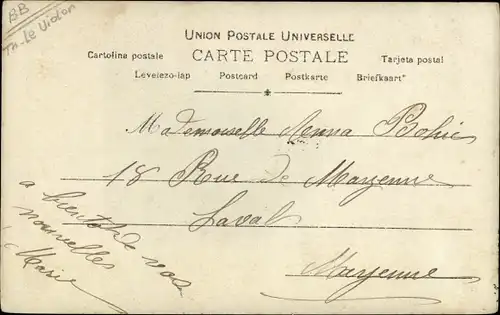 BB
Th. Le Violon
UNION POSTALE UNIVERSELLE
CARTE POSTALE
Cartolina postale
Tarjeta postal
Levelezo-lap Postcard Postkarte Briefkaart
Mademoiselle
18 Rue de Mayenne
Laval
Mayenne
a bientot de vos
nouvelles
Marie